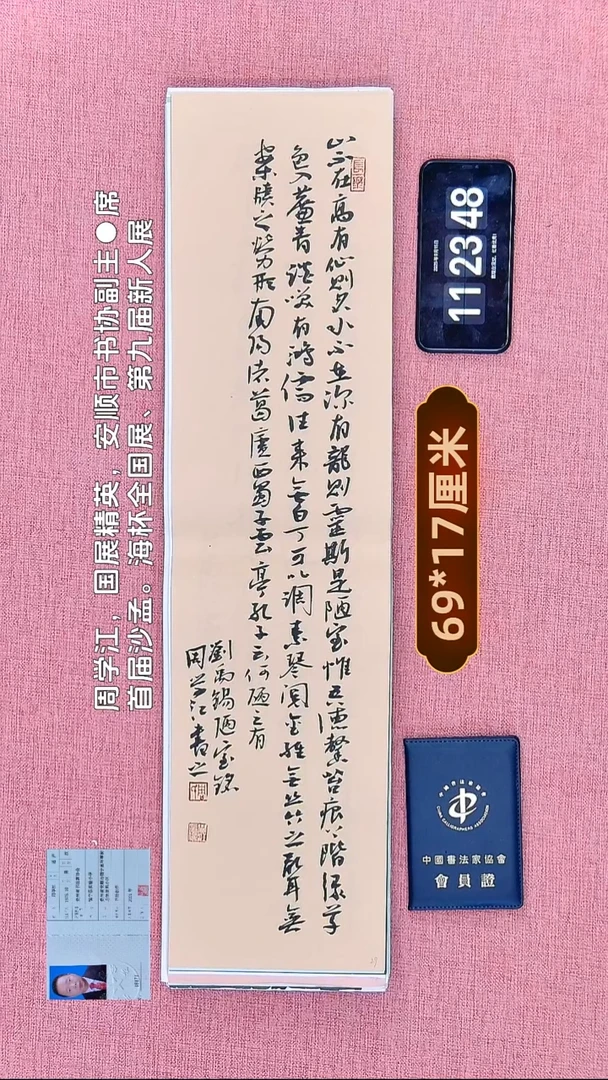 周学江，国展精英，安顺市书协副主●席
首届沙孟。海杯全国展、第九届新人展
山不在高有仙則名水不在深有龍則靈斯是陋室惟吾德馨苔痕上階綠草
色入簾青談笑有鴻儒往來無白丁可以調素琴閱金經無絲竹之亂耳無
案牘之勞形南陽諸葛廬西蜀子雲亭孔子云何陋之有
劉禹錫陋室銘
周学江書之
11 23 48
69*17厘米
中國書法家協會
會員證